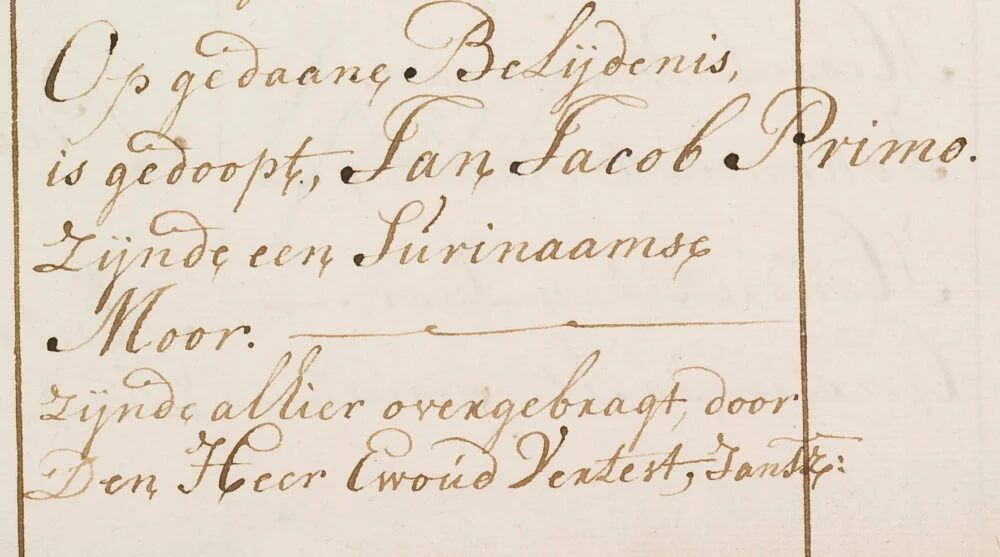 Op gedaane Belijdenis,
is gedoopt, Jan Jacob Primo.
zijnde een Surinaamse
Moor.
zijnde alhier overgebragt, door
Den Heer Ewoud Vertest, Jansz: